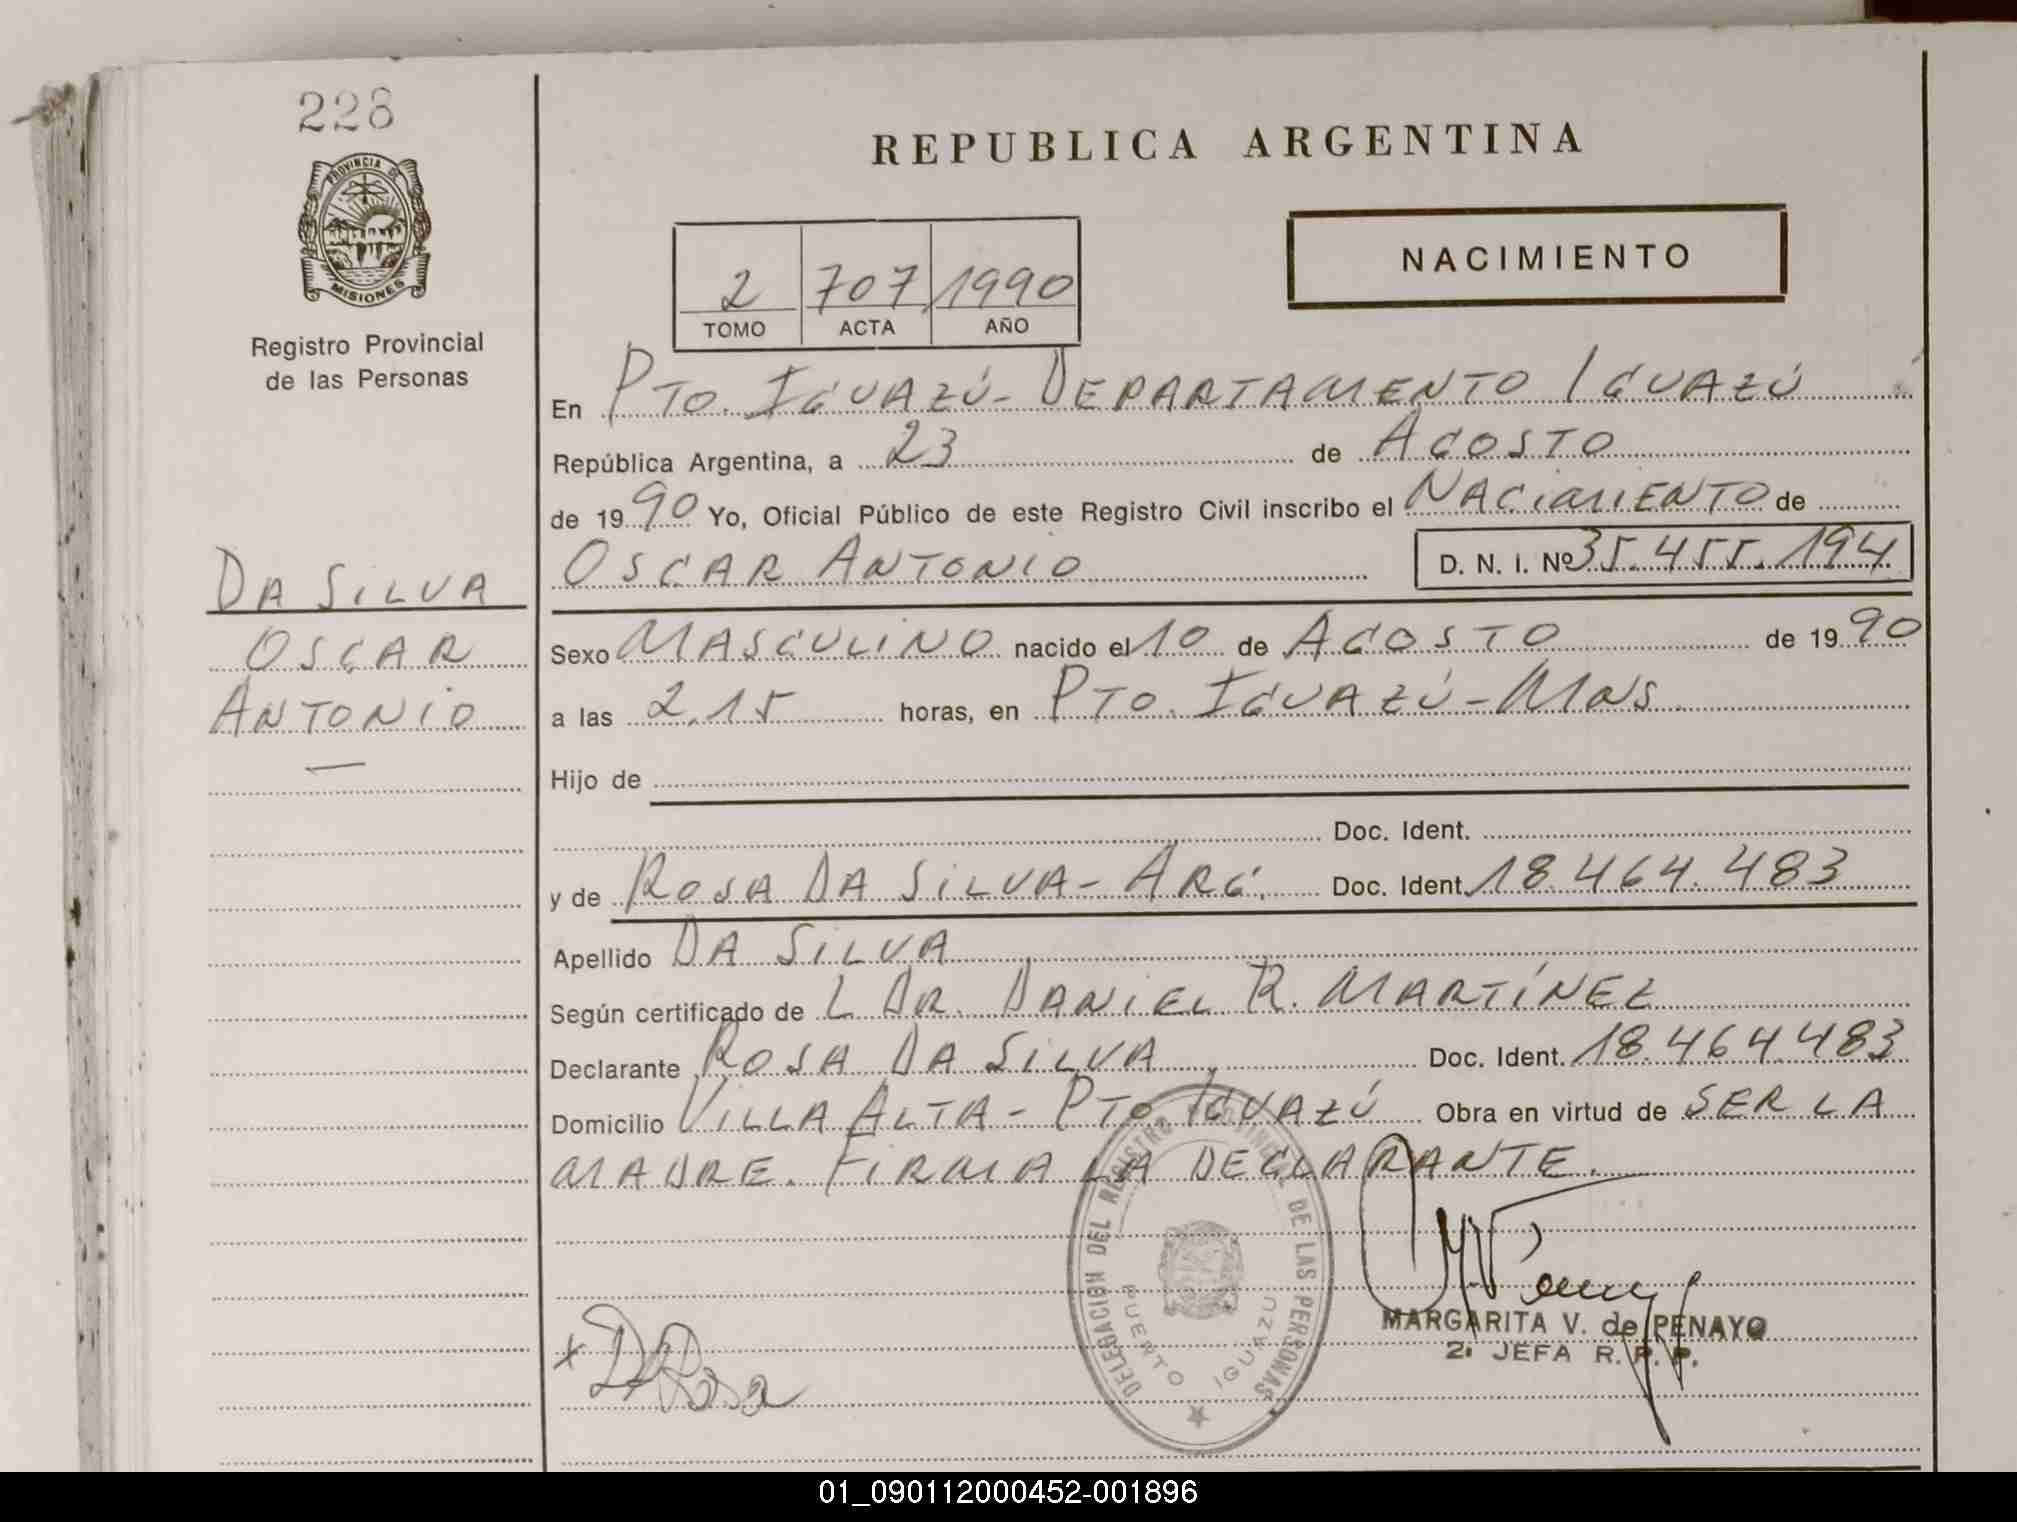 228
PROVINCIA DE
MISIONES
Registro Provincial
de las Personas
REPUBLICA ARGENTINA
NACIMIENTO
2 707 1990
TOMO ACTA AÑO
En PTO. IGUAZÚ - DEPARTAMENTO IGUAZÚ
República Argentina, a 23 de AGOSTO
de 1990 Yo, Oficial Público de este Registro Civil inscribo el NACIMIENTO de
OSCAR ANTONIO D. N. I. Nº 35.455.194
DA SILVA
OSCAR
ANTONIO
—
Sexo MASCULINO nacido el 10 de AGOSTO de 1990
a las 2.15 horas, en PTO. IGUAZÚ - MNS
Hijo de
Doc. Ident.
y de ROSA DA SILVA - ARG. Doc. Ident. 18.464.483
Apellido DA SILVA
Según certificado de L DR. DANIEL R. MARTÍNEZ
Declarante ROSA DA SILVA Doc. Ident. 18.464.483
Domicilio VILLA ALTA - PTO IGUAZÚ Obra en virtud de SER LA
MADRE. FIRMA LA DECLARANTE.
DELEGACION DEL REGISTRO PROVINCIAL DE LAS PERSONAS
PUERTO IGUAZU
MARGARITA V. de PENAYO
2ª JEFA R. P. P.
x D Rosa
01_090112000452-001896